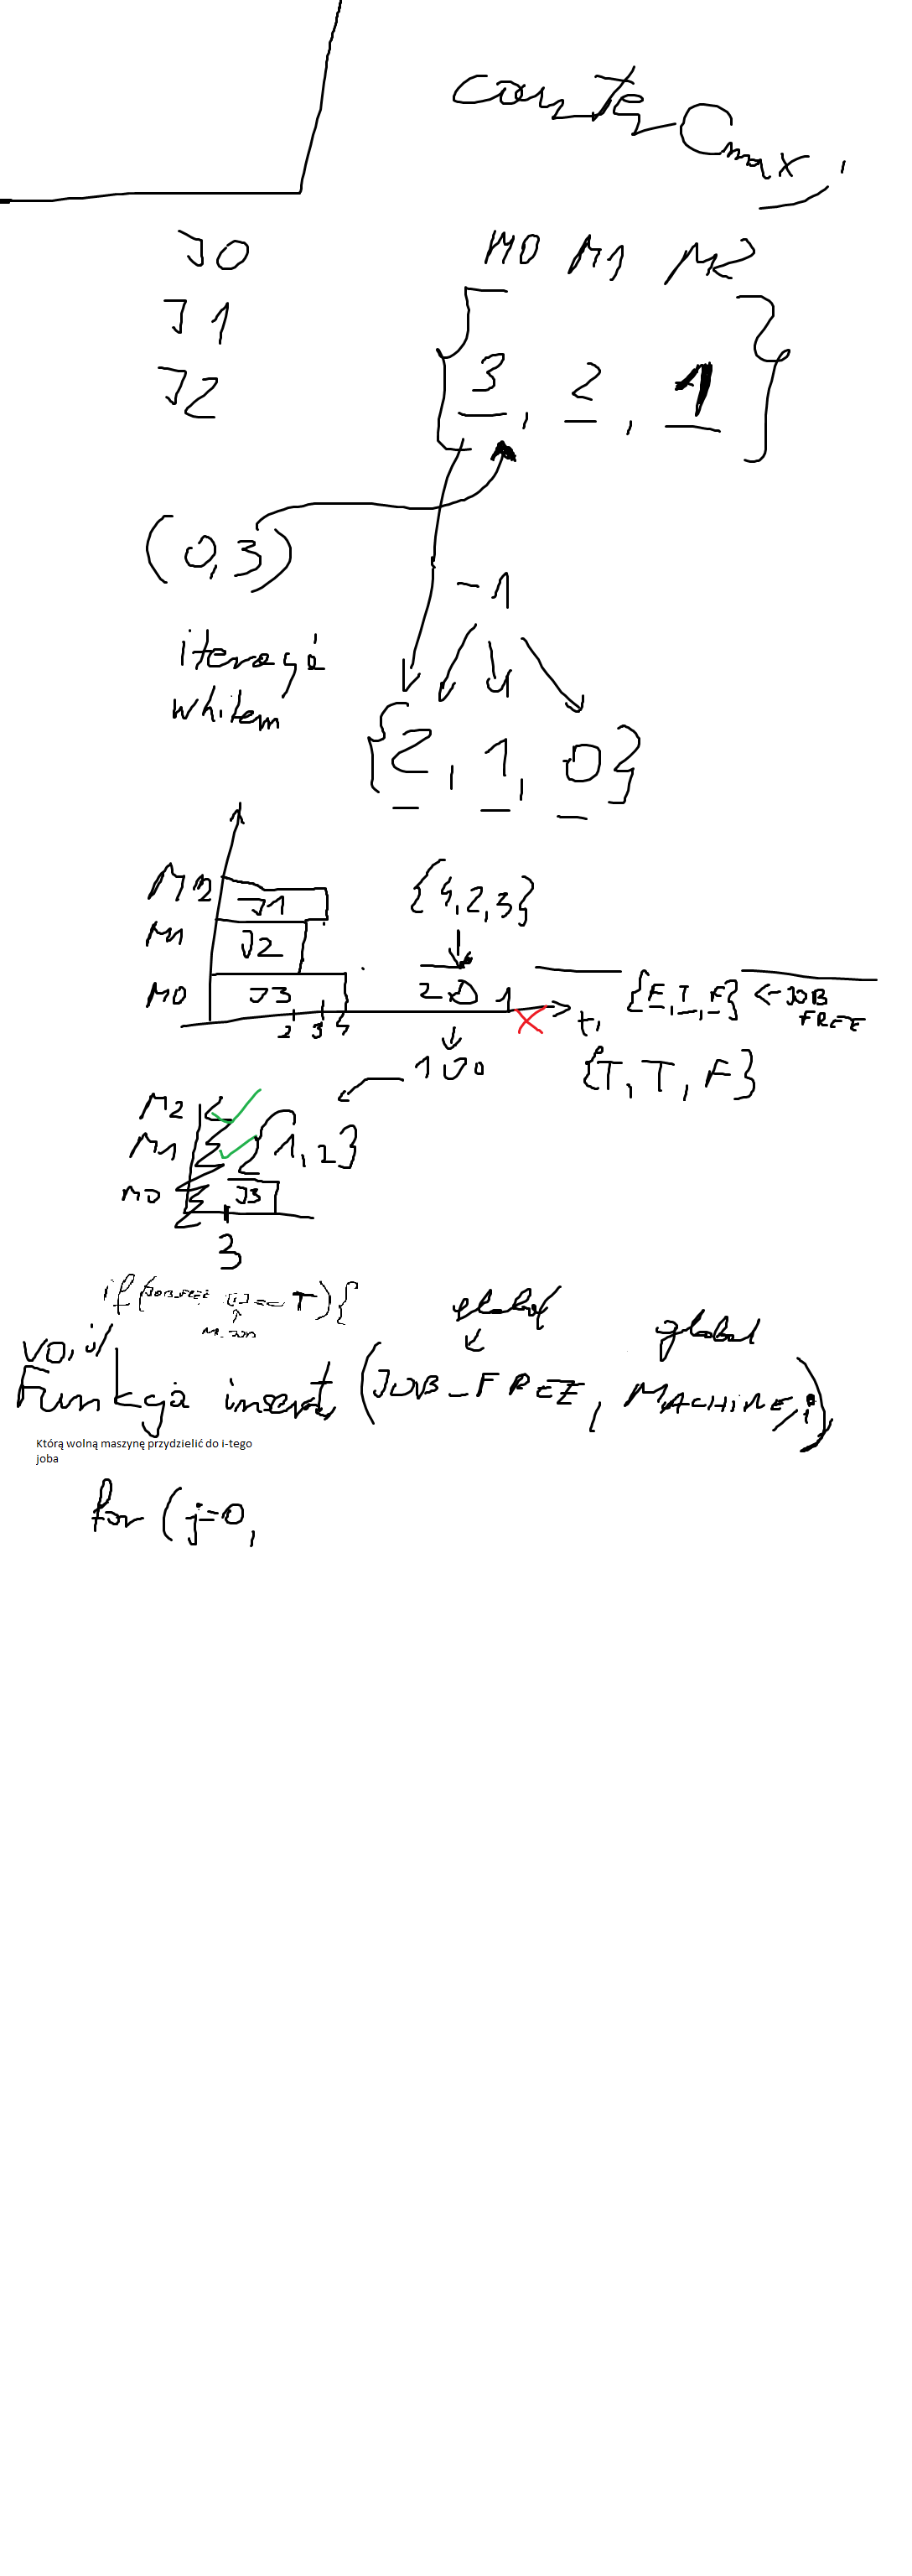 counter Cmax,
J0
J1
J2
M0 M1 M2
{3, 2, 1}
(0,3)
-1
iteracja
whilem
{2, 1, 0}
M2 J1
M1 J2
M0 J3
2 3 4
t,
{4,2,3}
2 0 1
1 0 0
{F, T, F} <- JOB FREE
{T, T, F}
M2
M1 {1, 2}
M0 J3
3
if (JOB_FREE [i] == T) {
nr_job
global
global
void
Funkcja insert (JOB_FREE, MACHINE, i)
Którą wolną maszynę przydzielić do i-tego
joba
for (j=0,